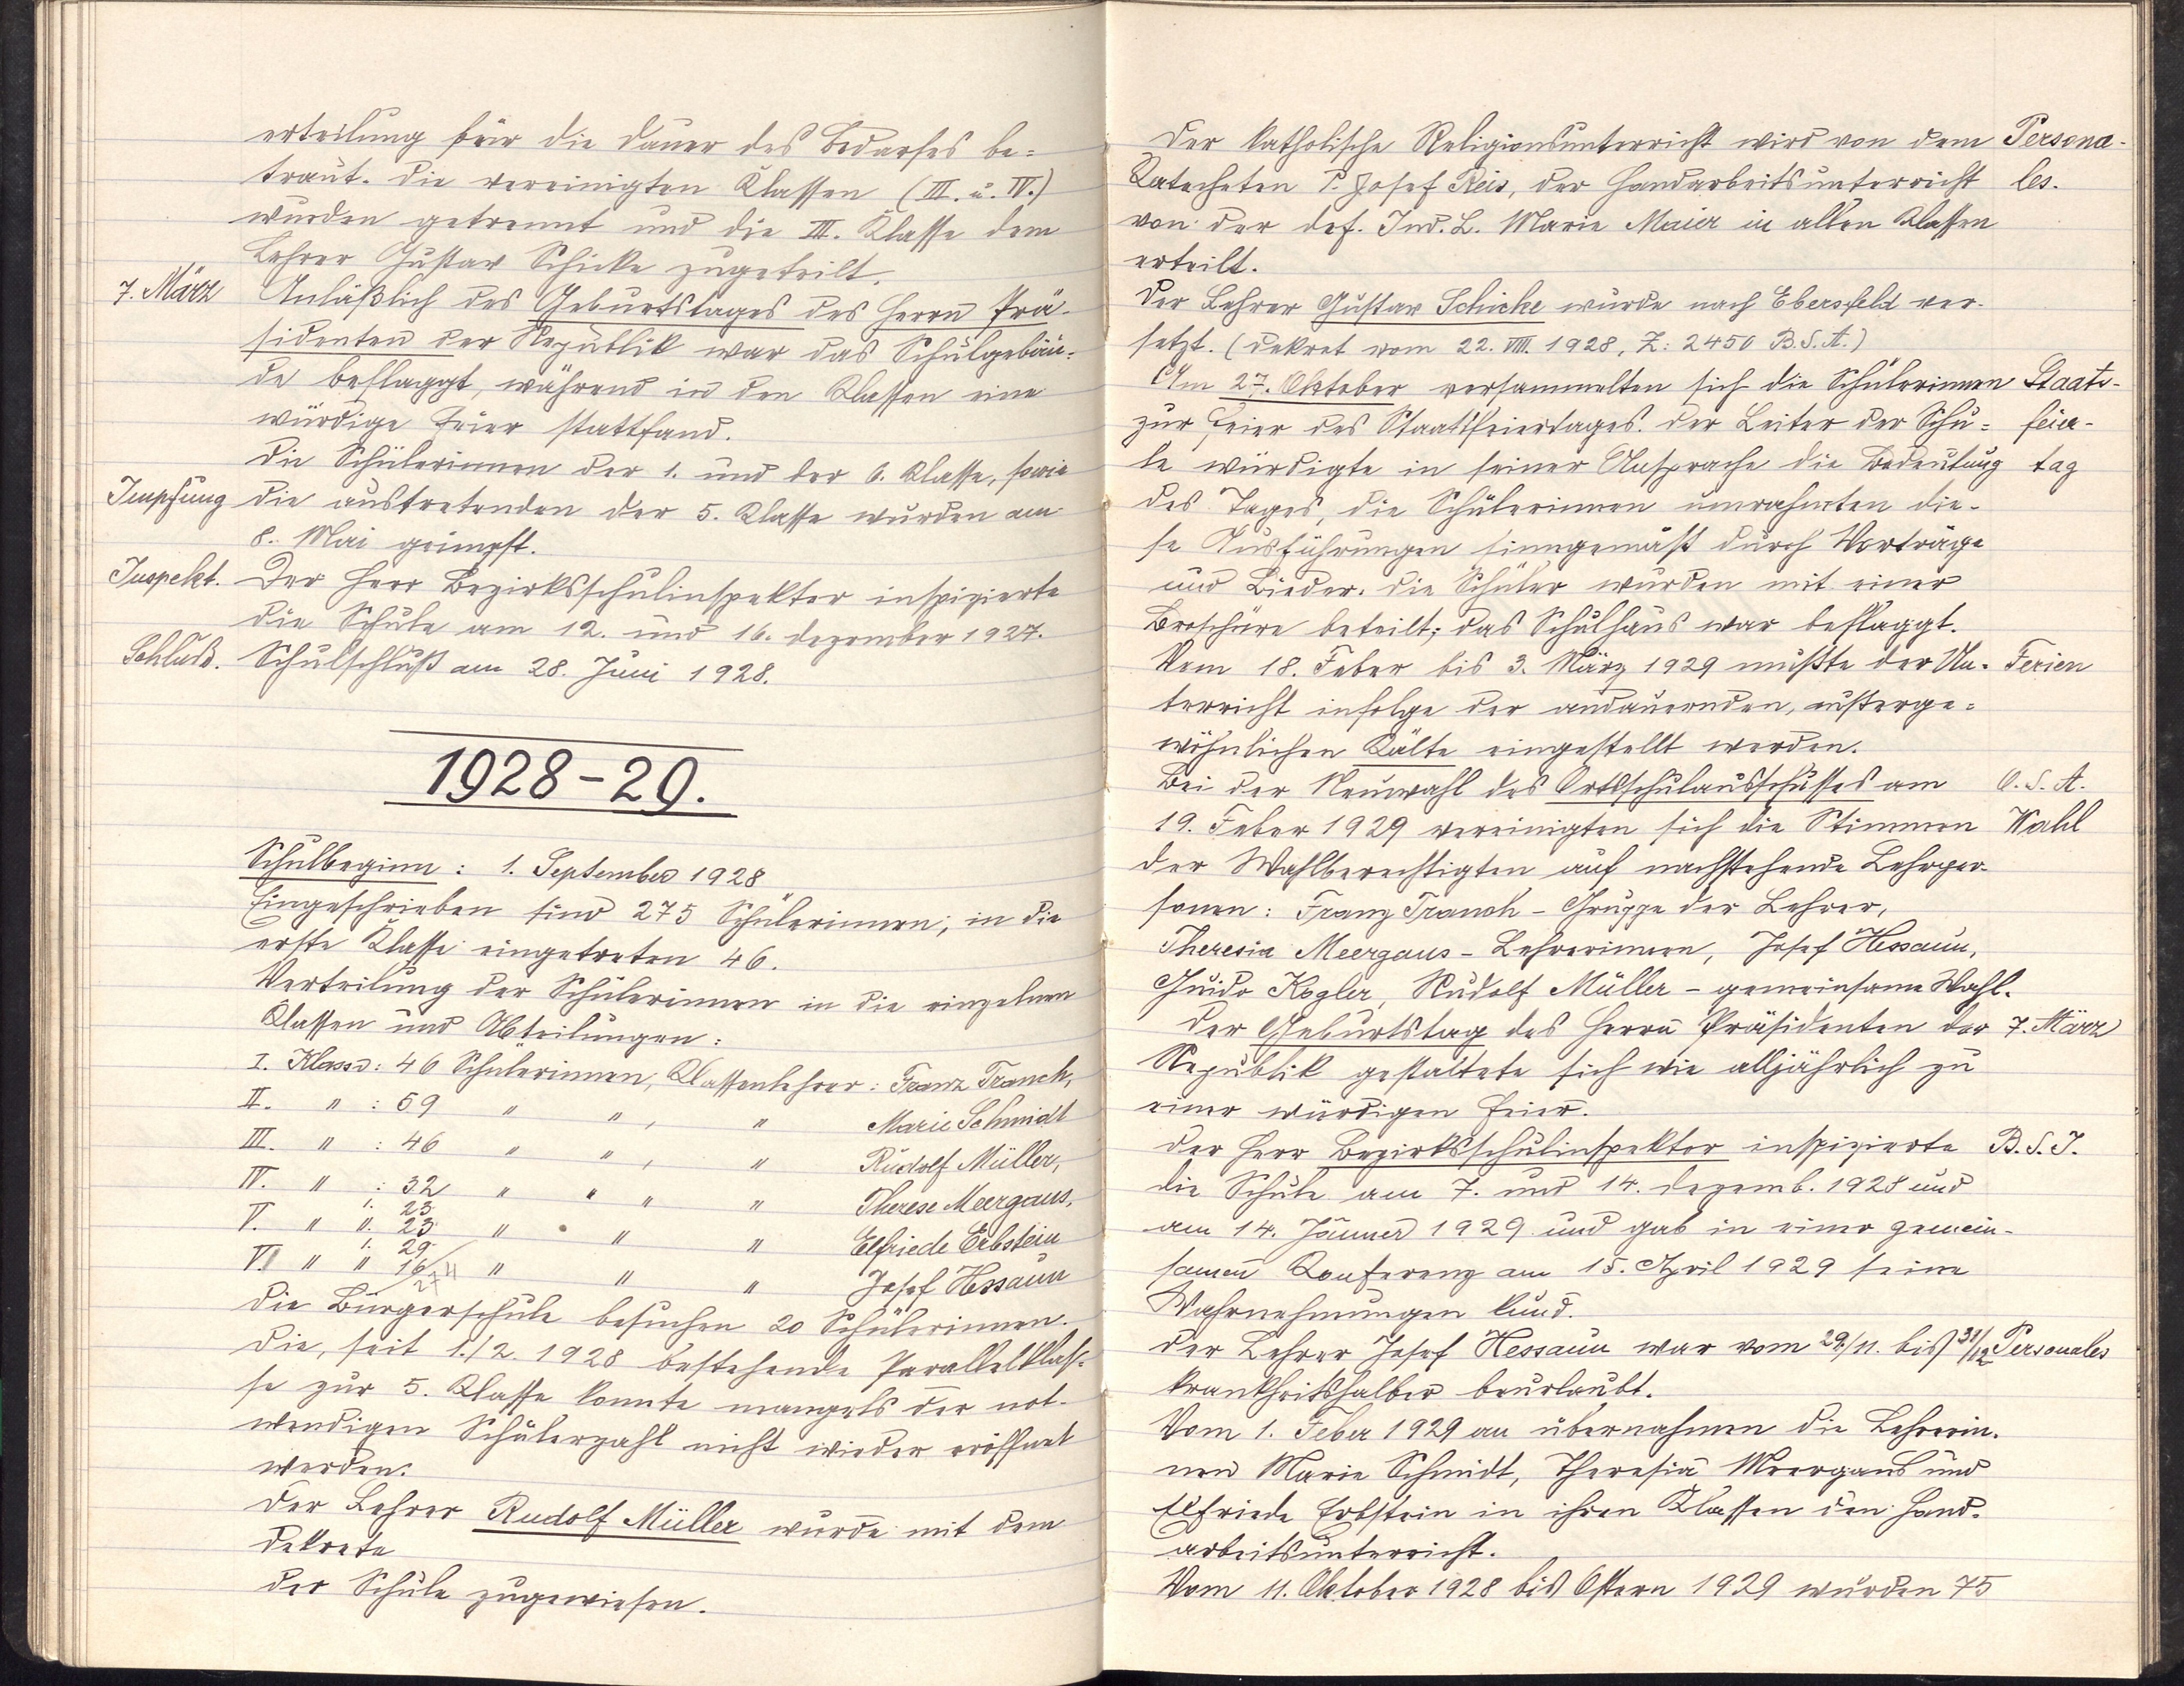 erteilung für die Dauer des Bedarfes be=
traut. Die vereinigten Klassen (III. u. IV.)
wurden getrennt und die III. Klasse dem
Lehrer Gustav Schicke zugeteilt.
7. März Anläßlich des Geburtstages des Herrn Prä-
sidenten der Republik war das Schulgebäu=
de beflaggt, während in den Klassen eine
würdige Feier stattfand.
Die Schülerinnen der 1. und der 6. Klasse, sowie
Impfung die austretenden der 5. Klasse wurden am
8. Mai geimpft.
Inspekt. Der Herr Bezirksschulinspektor inspizierte
die Schule am 12. und 16. Dezember 1927.
Schluß. Schulschluß am 28. Juni 1928.
1928-29.
Schulbeginn: 1. September 1928
Eingeschrieben sind 275 Schülerinnen; in die
erste Klasse eingetreten 46.
Verteilung der Schülerinnen in die einzelnen
Klassen und Abteilungen:
I. Klasse: 46 Schülerinnen, Klassenlehrer: Franz Tranch,
II. " : 59 " " , " Marie Schmidt
III. " : 46 " " , " Rudolf Müller,
IV. " : 32 " " " " Therese Meergans,
V. " 1. 23 II. 23 " " " Elfriede Erbstein
VI. " 1. 29 " 16 " " " Josef Hessaun
274
Die Bürgerschule besuchen 20 Schülerinnen.
Die, seit 1./2. 1928 bestehende Parallelklas=
se zur 5. Klasse konnte mangels der not-
wendigen Schülerzahl nicht wieder eröffnet
werden.
Der Lehrer Rudolf Müller wurde mit dem
Dekrete
der Schule zugewiesen.
Der katholische Religionsunterricht wird von dem Persona-
Katecheten P. Josef Reis, der Handarbeitsunterricht les.
von der def. Ind. L. Marie Maier in allen Klassen
erteilt.
Der Lehrer Gustav Schicke wurde nach Ebersfeld ver-
setzt. (Dekret vom 22. VIII. 1928, Z: 2450 B.S.A.)
Am 27. Oktober versammelten sich die Schülerinnen Staats-
zur Feier des Staatsfeiertages. Der Leiter der Schu= feier-
le würdigte in seiner Ansprache die Bedeutung tag
des Tages, die Schülerinnen umrahmten die-
se Ausführungen sinngemäß durch Vorträge
und Lieder. Die Schüler wurden mit einer
Broschüre beteilt; das Schulhaus war beflaggt.
Vom 18. Feber bis 3. März 1929 mußte der Un- Ferien
terricht infolge der andauernden, außerge=
wöhnlichen Kälte eingestellt werden.
Bei der Neuwahl des Ortsschulausschusses am O.S.A.
19. Feber 1929 vereinigten sich die Stimmen Wahl
der Wahlberechtigten auf nachstehende Lehrper-
sonen: Franz Tranch - Gruppe der Lehrer,
Theresia Meergans - Lehrerinnen, Josef Hessaun,
Guido Kogler, Rudolf Müller - gemeinsame Wahl.
Der Geburtstag des Herrn Präsidenten der 7. März
Republik gestaltete sich wie alljährlich zu
einer würdigen Feier.
Der Herr Bezirksschulinspektor inspizierte B.S.I.
die Schule am 7. und 14. Dezemb. 1928 und
am 14. Jänner 1929 und gab in einer gemein-
samen Konferenz am 15. April 1929 seine
Wahrnehmungen kund.
Der Lehrer Josef Hessaun war vom 29./11. bis 31/12 Personales
krankheitshalber beurlaubt.
Vom 1. Feber 1929 an übernahmen die Lehrerin-
nen Marie Schmidt, Theresia Meergans und
Elfriede Erbstein in ihren Klassen den Hand-
arbeitsunterricht.
Vom 11. Oktober 1928 bis Ostern 1929 wurden 75